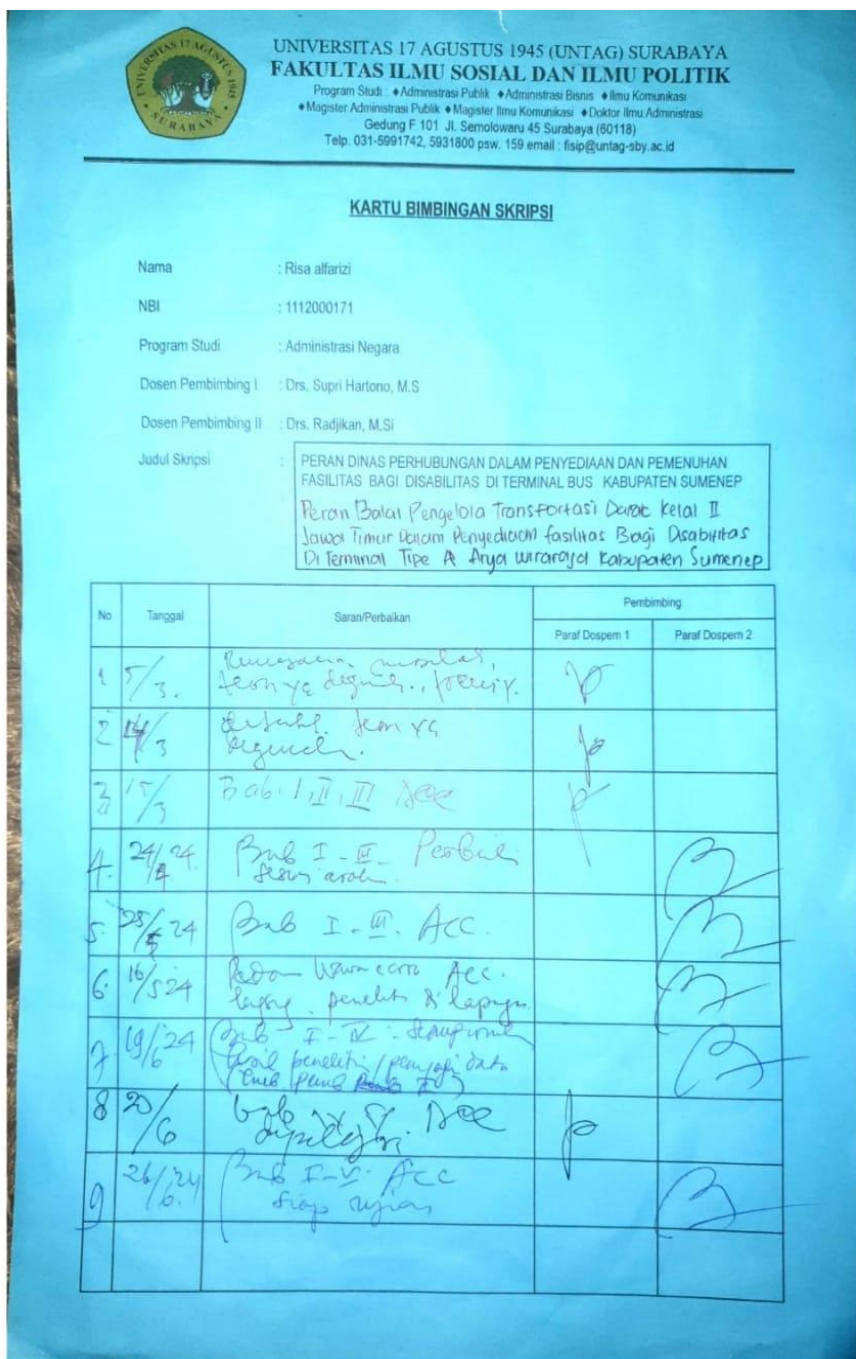 UNIVERSITAS 17 AGUSTUS 1945
SURABAYA
UNIVERSITAS 17 AGUSTUS 1945 (UNTAG) SURABAYA
FAKULTAS ILMU SOSIAL DAN ILMU POLITIK
Program Studi : ♦Administrasi Publik ♦Administrasi Bisnis ♦Ilmu Komunikasi
♦Magister Administrasi Publik ♦Magister Ilmu Komunikasi ♦Doktor Ilmu Administrasi
Gedung F 101 Jl. Semolowaru 45 Surabaya (60118)
Telp. 031-5991742, 5931800 psw. 159 email : fisip@untag-sby.ac.id
KARTU BIMBINGAN SKRIPSI
Nama : Risa alfarizi
NBI : 1112000171
Program Studi : Administrasi Negara
Dosen Pembimbing I : Drs. Supri Hartono, M.S
Dosen Pembimbing II : Drs. Radjikan, M.Si
Judul Skripsi : PERAN DINAS PERHUBUNGAN DALAM PENYEDIAAN DAN PEMENUHAN
FASILITAS BAGI DISABILITAS DI TERMINAL BUS KABUPATEN SUMENEP
Peran Balai Pengelola Transportasi Darat Kelal II
Jawa Timur Dalam Penyediaan fasilitas Bagi Disabilitas
Di Terminal Tipe A Arya wiraraja Kabupaten Sumenep
No Tanggal Saran/Perbaikan Pembimbing
Paraf Dospem 1 Paraf Dospem 2
1 5/3.
2 14/3
3 15/3 Bab. I, II, III Acc
4. 24/4 24 Bab I - III
5. 24 Bab I - III. Acc.
6. 16/5 24 Acc.
7 19/6 24 Bab I - IV
8 20/6 bab Acc
9 26/6. 24 Bab I-V. Acc
siap ujian